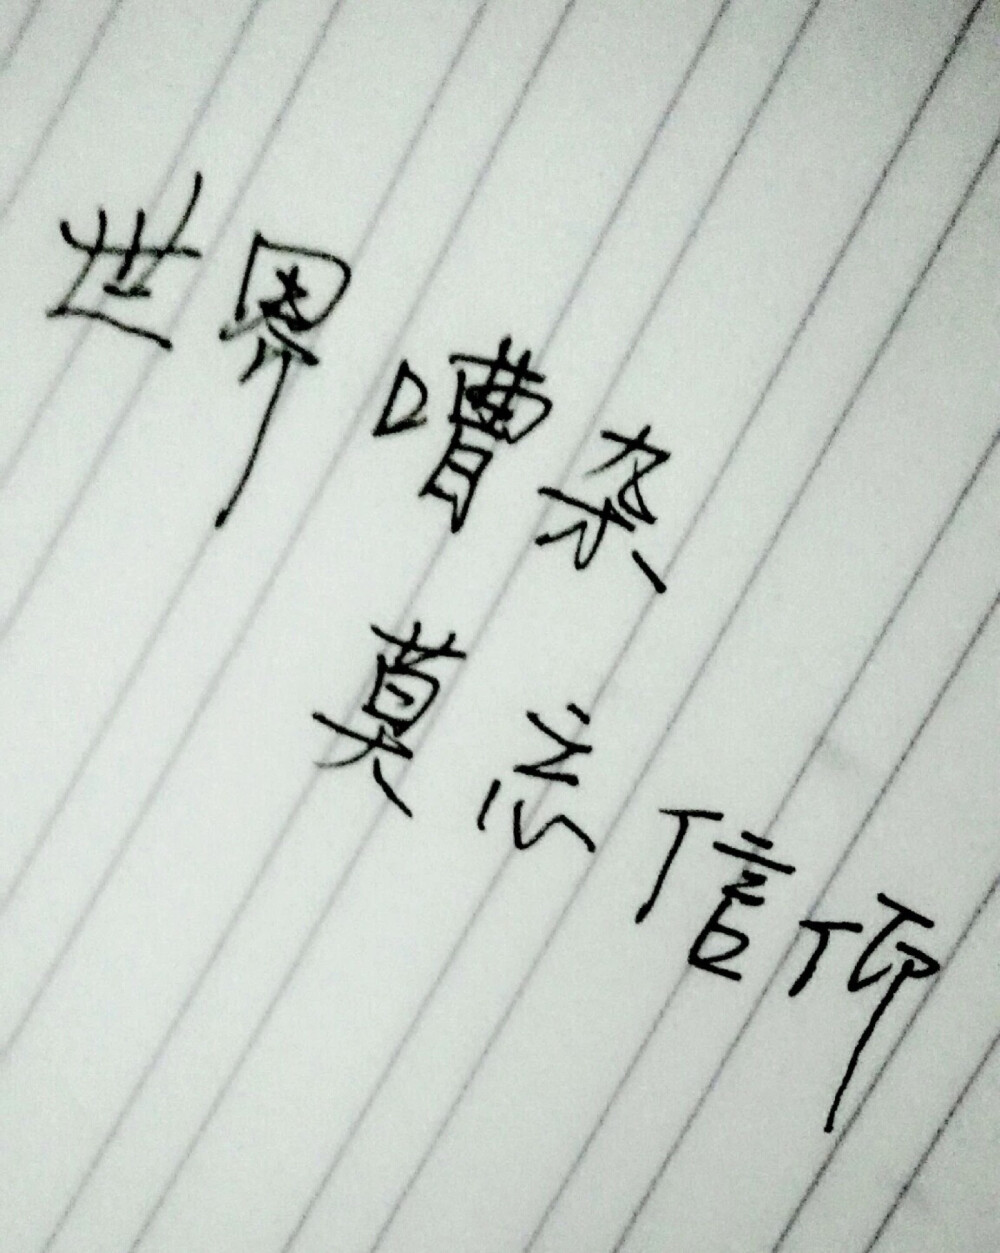 世界嘈杂
莫忘信仰